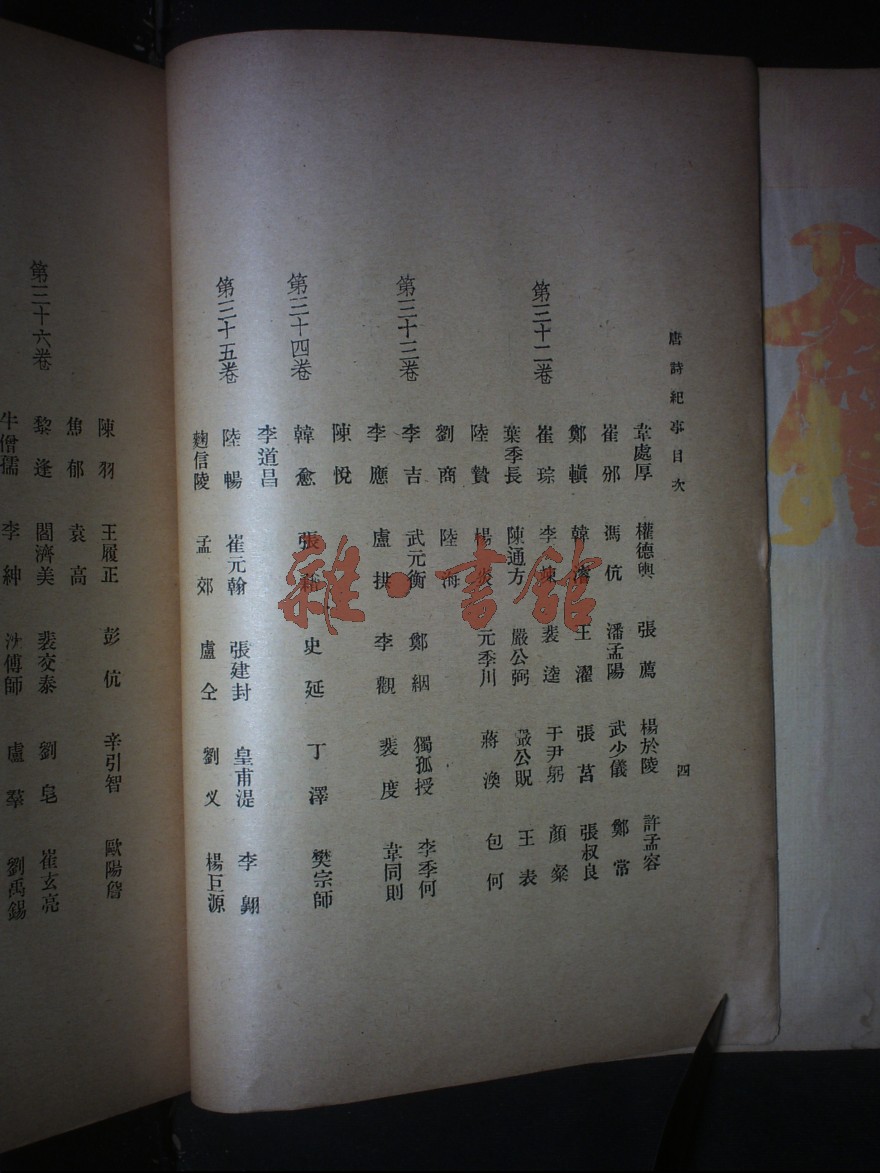 唐詩紀事目次
四
韋處厚 權德輿 張薦 楊於陵 許孟容
崔邠 馮伉 潘孟陽 武少儀 鄭常
第三十二卷
鄭轅 韓濬 王濯 張莒 張叔良
崔琮 李竦 裴逵 于尹躬 顏粲
葉季長 陳通方 嚴公弼 嚴公貺 王表
陸贄 楊炎 元季川 蔣渙 包何
劉商 陸海
第三十三卷
李吉 武元衡 鄭絪 獨孤授 李季何
李應 盧拱 李觀 裴度 韋同則
陳悅
第三十四卷
韓愈 張 史延 丁澤 樊宗師
李道昌
第三十五卷
陸暢 崔元翰 張建封 皇甫湜 李翺
麴信陵 孟郊 盧仝 劉乂 楊巨源
陳羽 王履正 彭伉 辛引智 歐陽詹
焦郁 袁高
第三十六卷
黎逢 閻濟美 裴交泰 劉皂 崔玄亮
牛僧孺 李紳 沈傅師 盧羣 劉禹錫
雜·書館